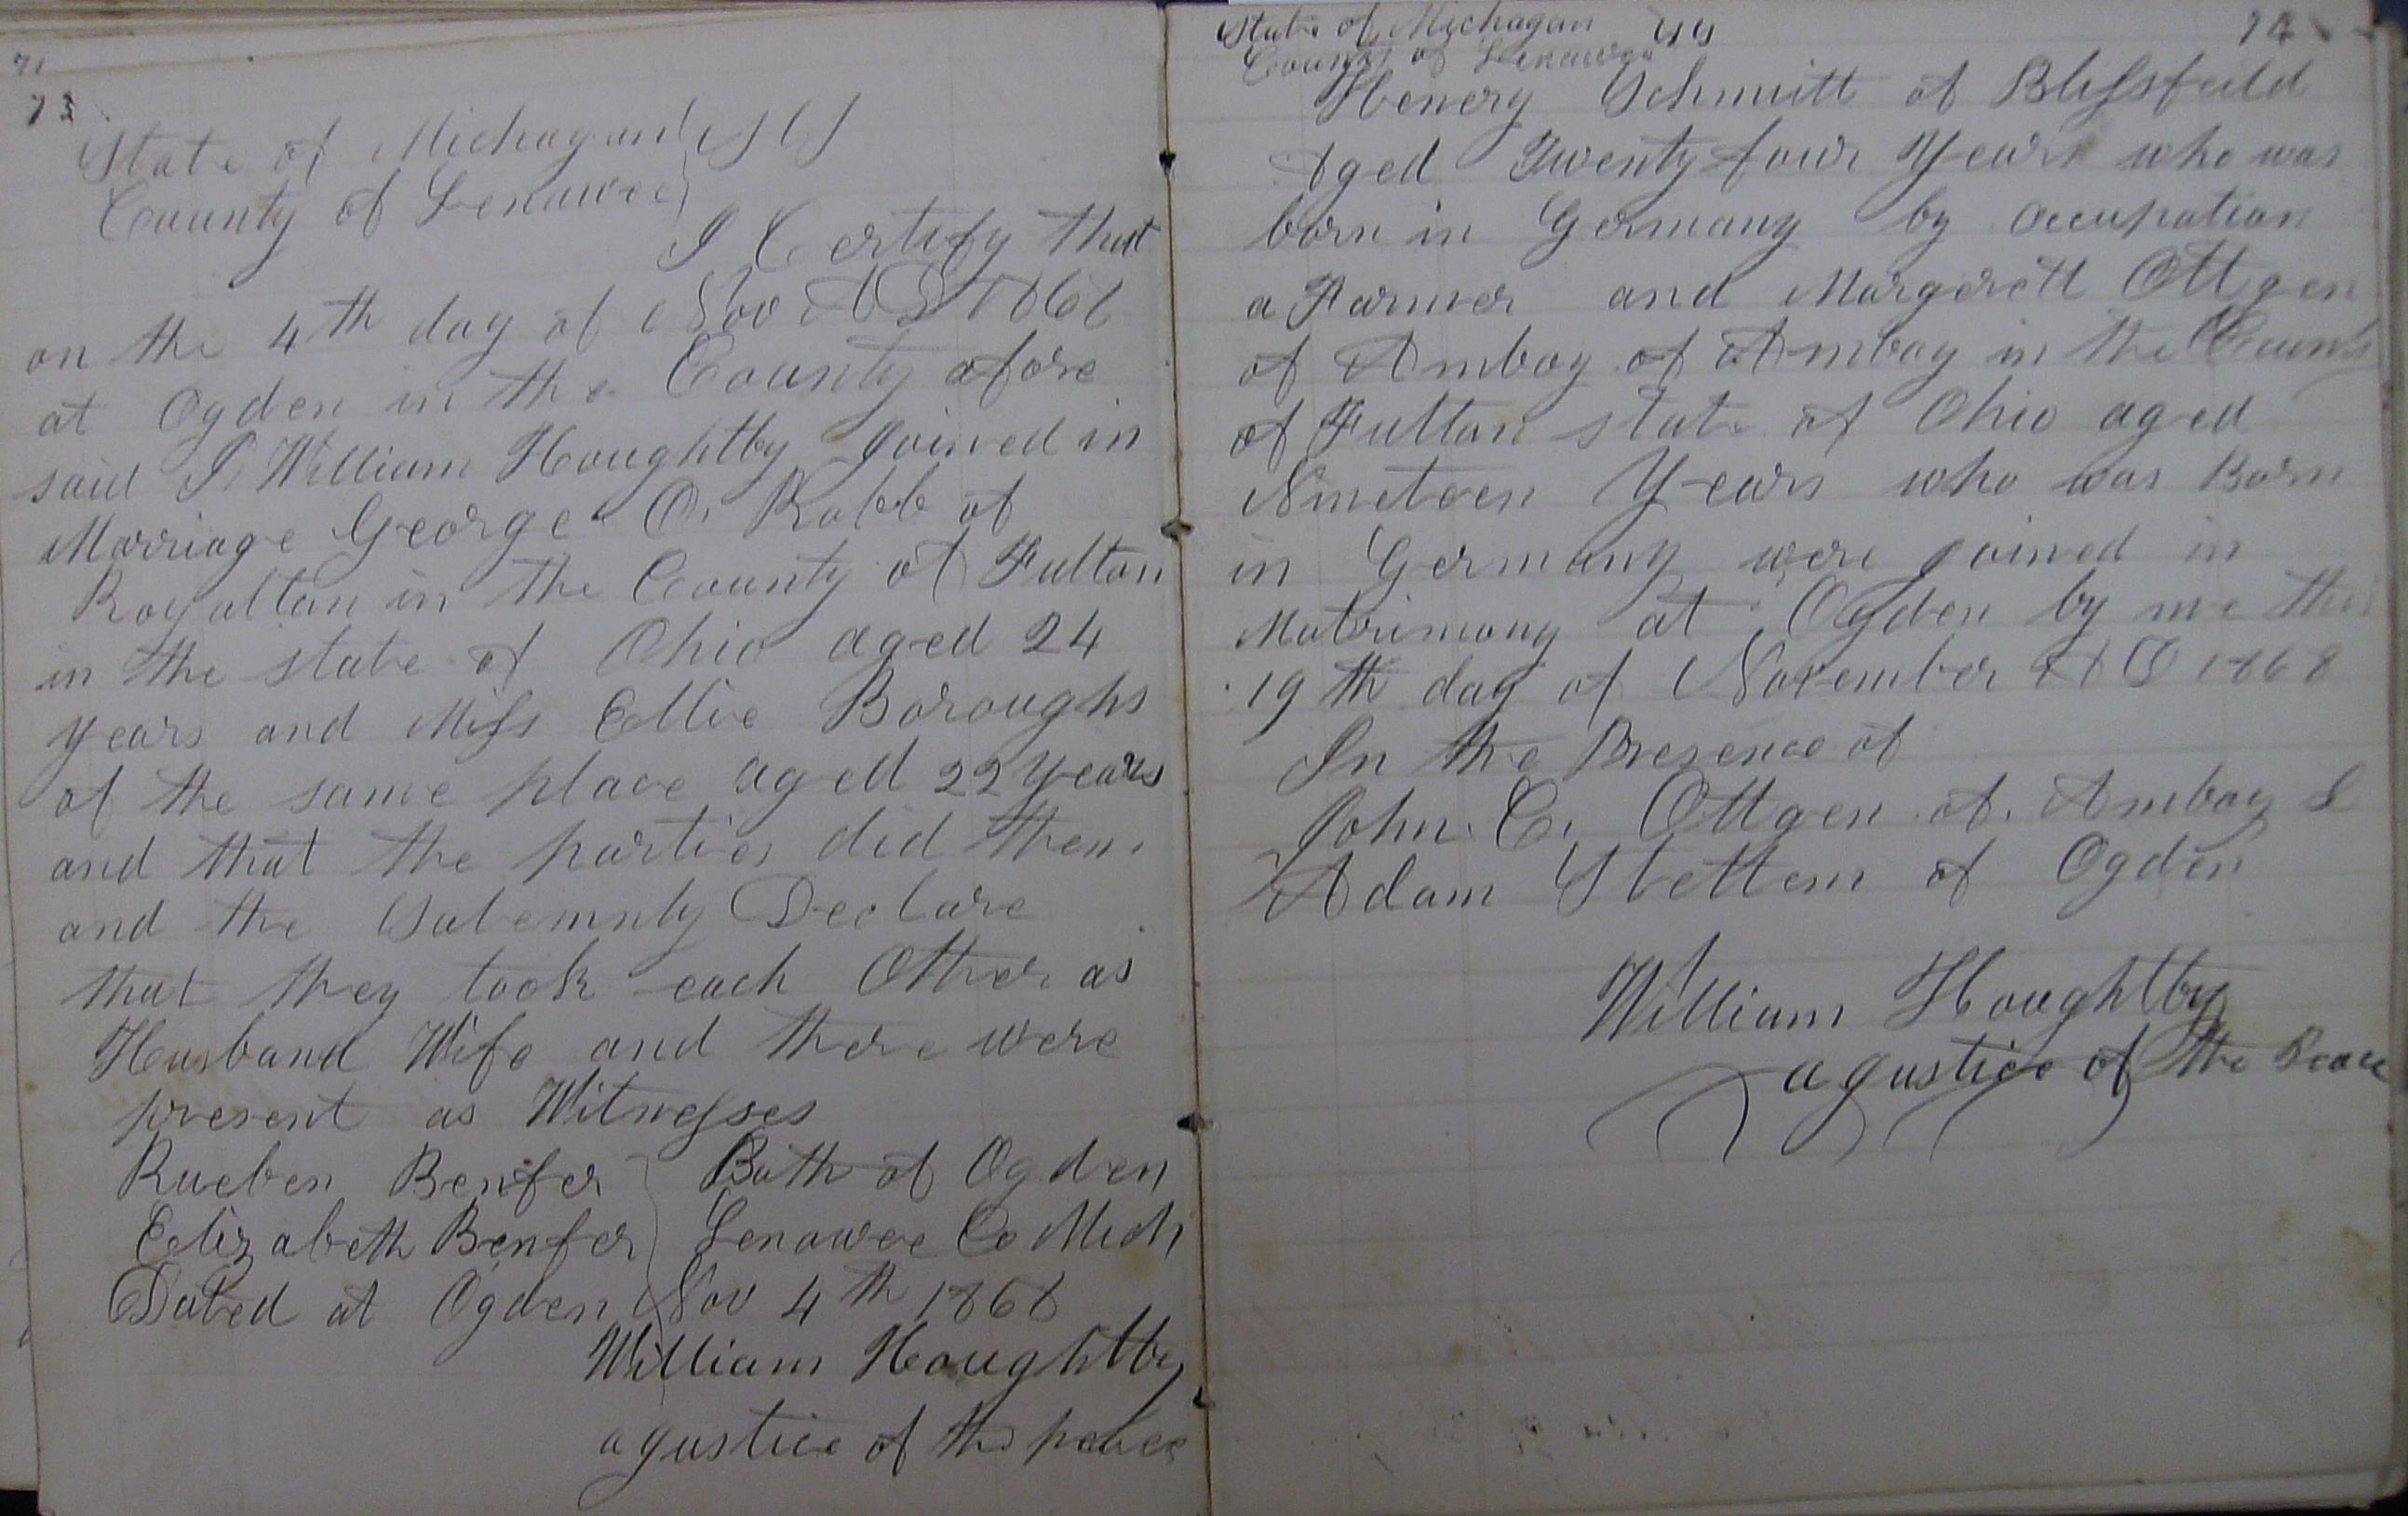 71
73
State of Michagan } SS
County of Lenawee }
I Certify that
on the 4th day of Nov AD 1868
at Ogden in the County afore
said I William Houghtby Joined in
Marriage George O. Robb of
Royalton in the County of Fulton
in the state of Ohio aged 24
years and Miss Ellie Boroughs
of the same place aged 22 years
and that the parties did then
and the Solemnly Declare
that they took each Other as
Husband Wife and there were
present as Witnesses
Rueben Benfer } Both of Ogden
Elizabeth Benfer } Lenawee Co Mich
Dated at Ogden Nov 4th 1868
William Houghtby
a Justice of the peace
74
State of Michagan SS
County of Lenawee
Henery Schmitt of Blissfeild
Aged Twenty four Years who was
born in Germany by occupation
a Farmer and Margerett Ottgen
of Amboy of Amboy in the County
of Fulton state of Ohio aged
Nineteen Years who was Born
in Germany were joined in
Matrimony at Ogden by me this
19th day of November AD 1868
In the Presence of
John C. Ottgen of Amboy &
Adam Stettem of Ogden
William Houghtby
a Justice of the Peace